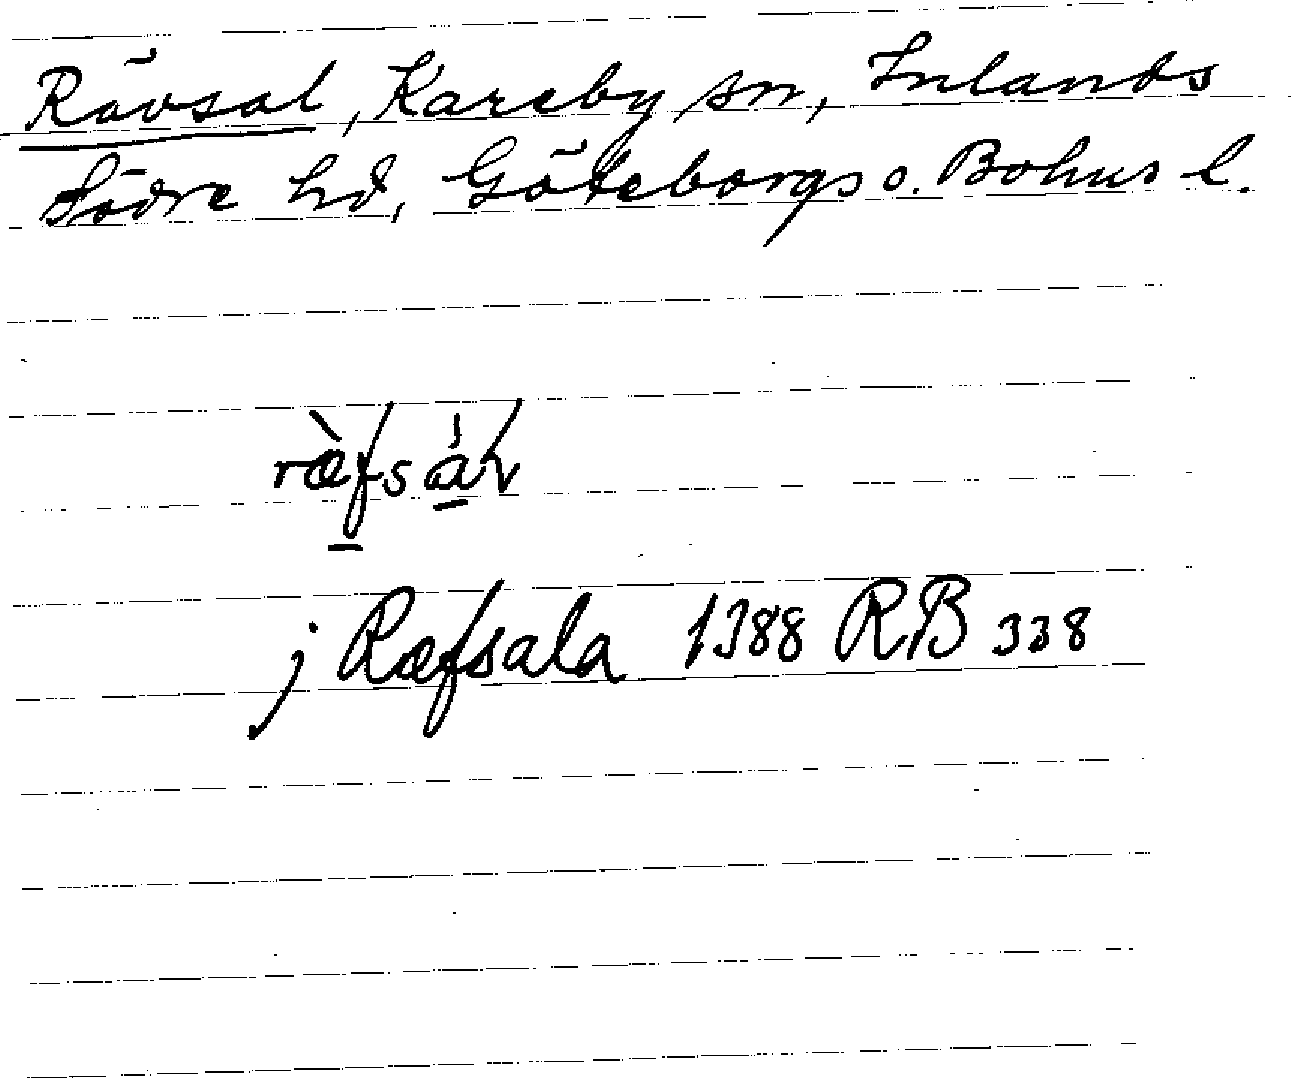 Rävsal, Kareby sn, Inlands
Södre hd, Göteborgs o. Bohus l.
ræ̀fsál
j Ræfsala 1388 RB 338